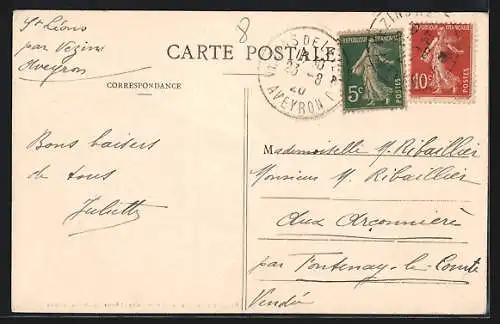 St Léons
par Vezins
Aveyron
8
CARTE POSTALE
CORRESPONDANCE
Bons baisers
de tous
Juliette
DE L
23 -8
20
AVEYRON
REPUBLIQUE FRANÇAISE
5c
POSTES
10c
POSTES
Mademoiselle M. Ribaillier
Monsieur M. Ribaillier
Aux Arçonnière
par Fontenay-le-Comte
Vendée